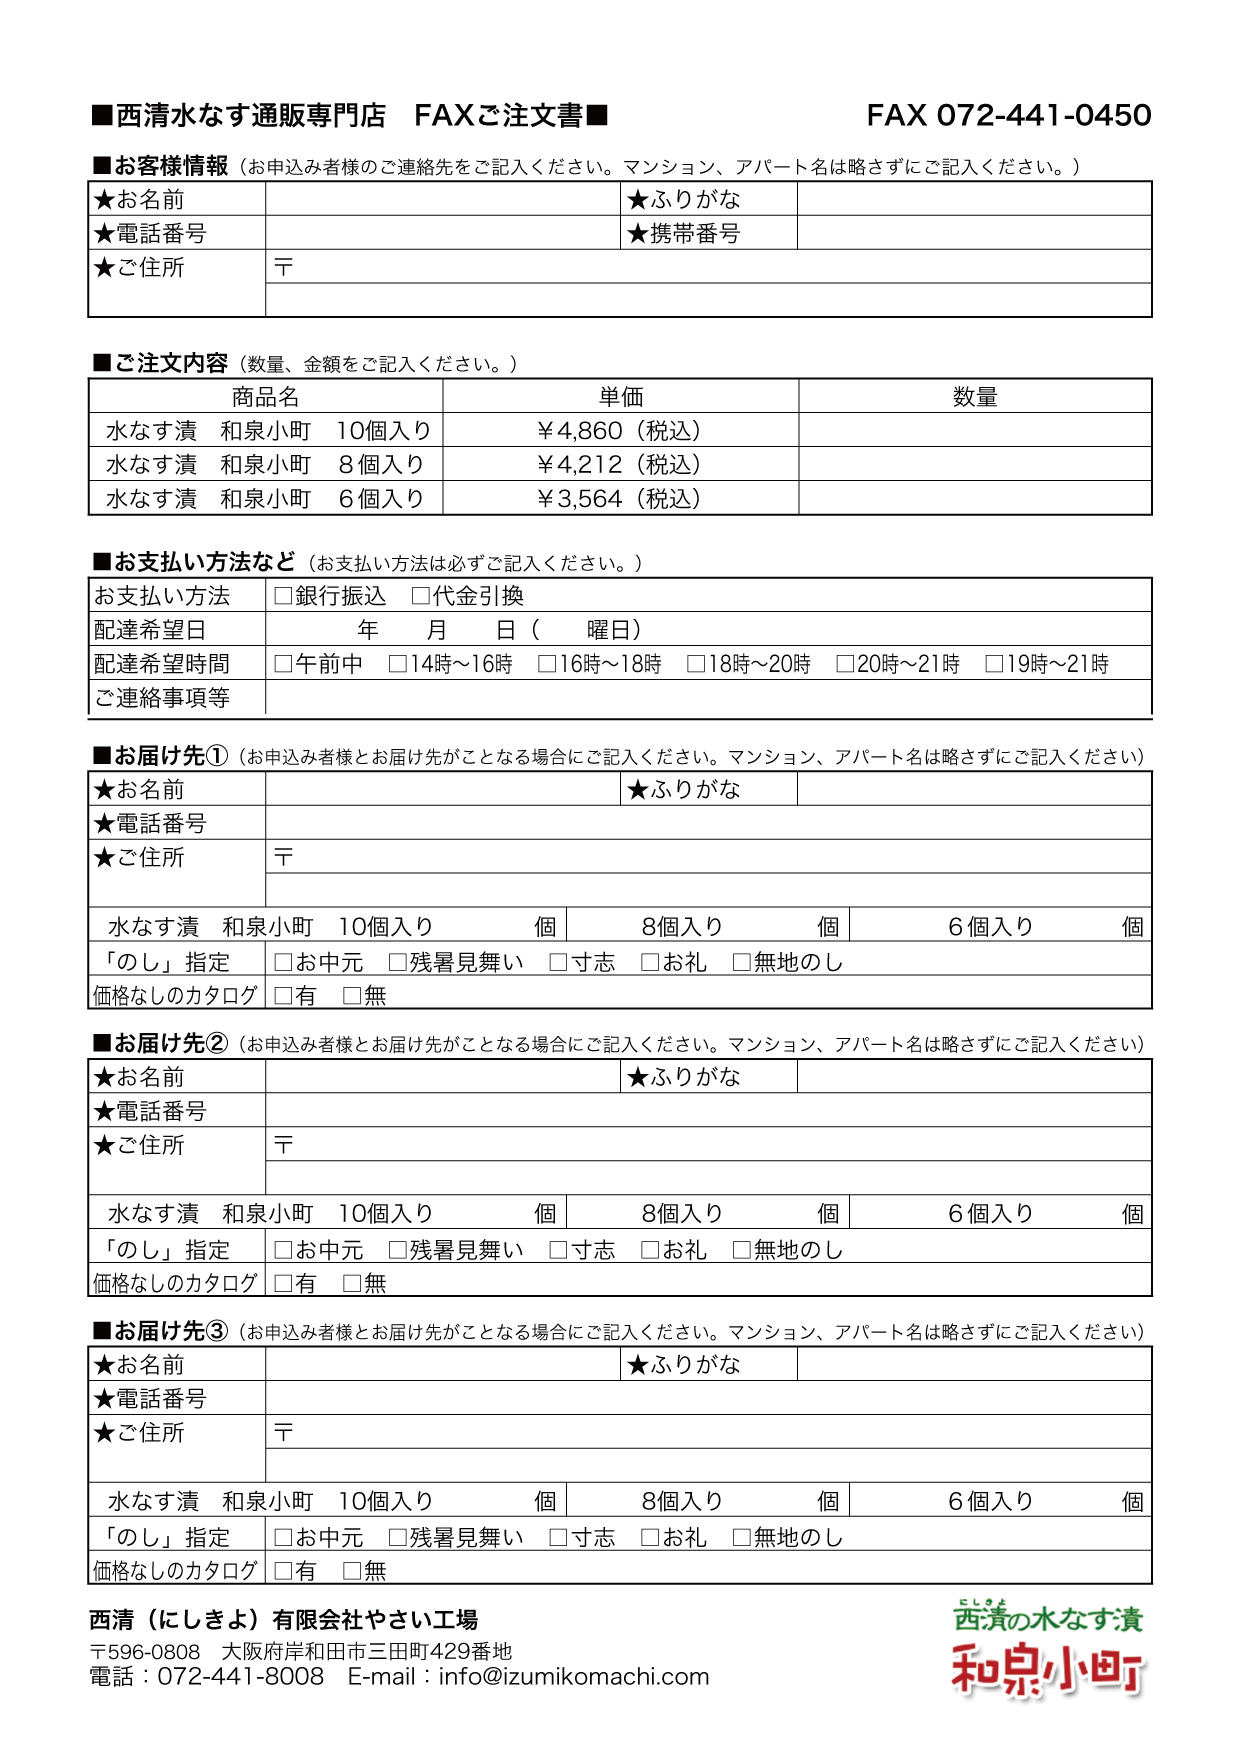 ■西清水なす通販専門店　FAXご注文書■　FAX 072-441-0450
■お客様情報（お申込み者様のご連絡先をご記入ください。マンション、アパート名は略さずにご記入ください。）
★お名前　★ふりがな
★電話番号　★携帯番号
★ご住所　〒
■ご注文内容（数量、金額をご記入ください。）
商品名　単価　数量
水なす漬　和泉小町　10個入り　￥4,860（税込）
水なす漬　和泉小町　８個入り　￥4,212（税込）
水なす漬　和泉小町　６個入り　￥3,564（税込）
■お支払い方法など（お支払い方法は必ずご記入ください。）
お支払い方法　□銀行振込　□代金引換
配達希望日　年　月　日（　曜日）
配達希望時間　□午前中　□14時〜16時　□16時〜18時　□18時〜20時　□20時〜21時　□19時〜21時
ご連絡事項等
■お届け先①（お申込み者様とお届け先がことなる場合にご記入ください。マンション、アパート名は略さずにご記入ください）
★お名前　★ふりがな
★電話番号
★ご住所　〒
水なす漬　和泉小町　10個入り　個　8個入り　個　６個入り　個
「のし」指定　□お中元　□残暑見舞い　□寸志　□お礼　□無地のし
価格なしのカタログ　□有　□無
■お届け先②（お申込み者様とお届け先がことなる場合にご記入ください。マンション、アパート名は略さずにご記入ください）
★お名前　★ふりがな
★電話番号
★ご住所　〒
水なす漬　和泉小町　10個入り　個　8個入り　個　６個入り　個
「のし」指定　□お中元　□残暑見舞い　□寸志　□お礼　□無地のし
価格なしのカタログ　□有　□無
■お届け先③（お申込み者様とお届け先がことなる場合にご記入ください。マンション、アパート名は略さずにご記入ください）
★お名前　★ふりがな
★電話番号
★ご住所　〒
水なす漬　和泉小町　10個入り　個　8個入り　個　６個入り　個
「のし」指定　□お中元　□残暑見舞い　□寸志　□お礼　□無地のし
価格なしのカタログ　□有　□無
西清（にしきよ）有限会社やさい工場
〒596-0808　大阪府岸和田市三田町429番地
電話：072-441-8008　E-mail：info@izumikomachi.com
にしきよ
西清の水なす漬
和泉小町